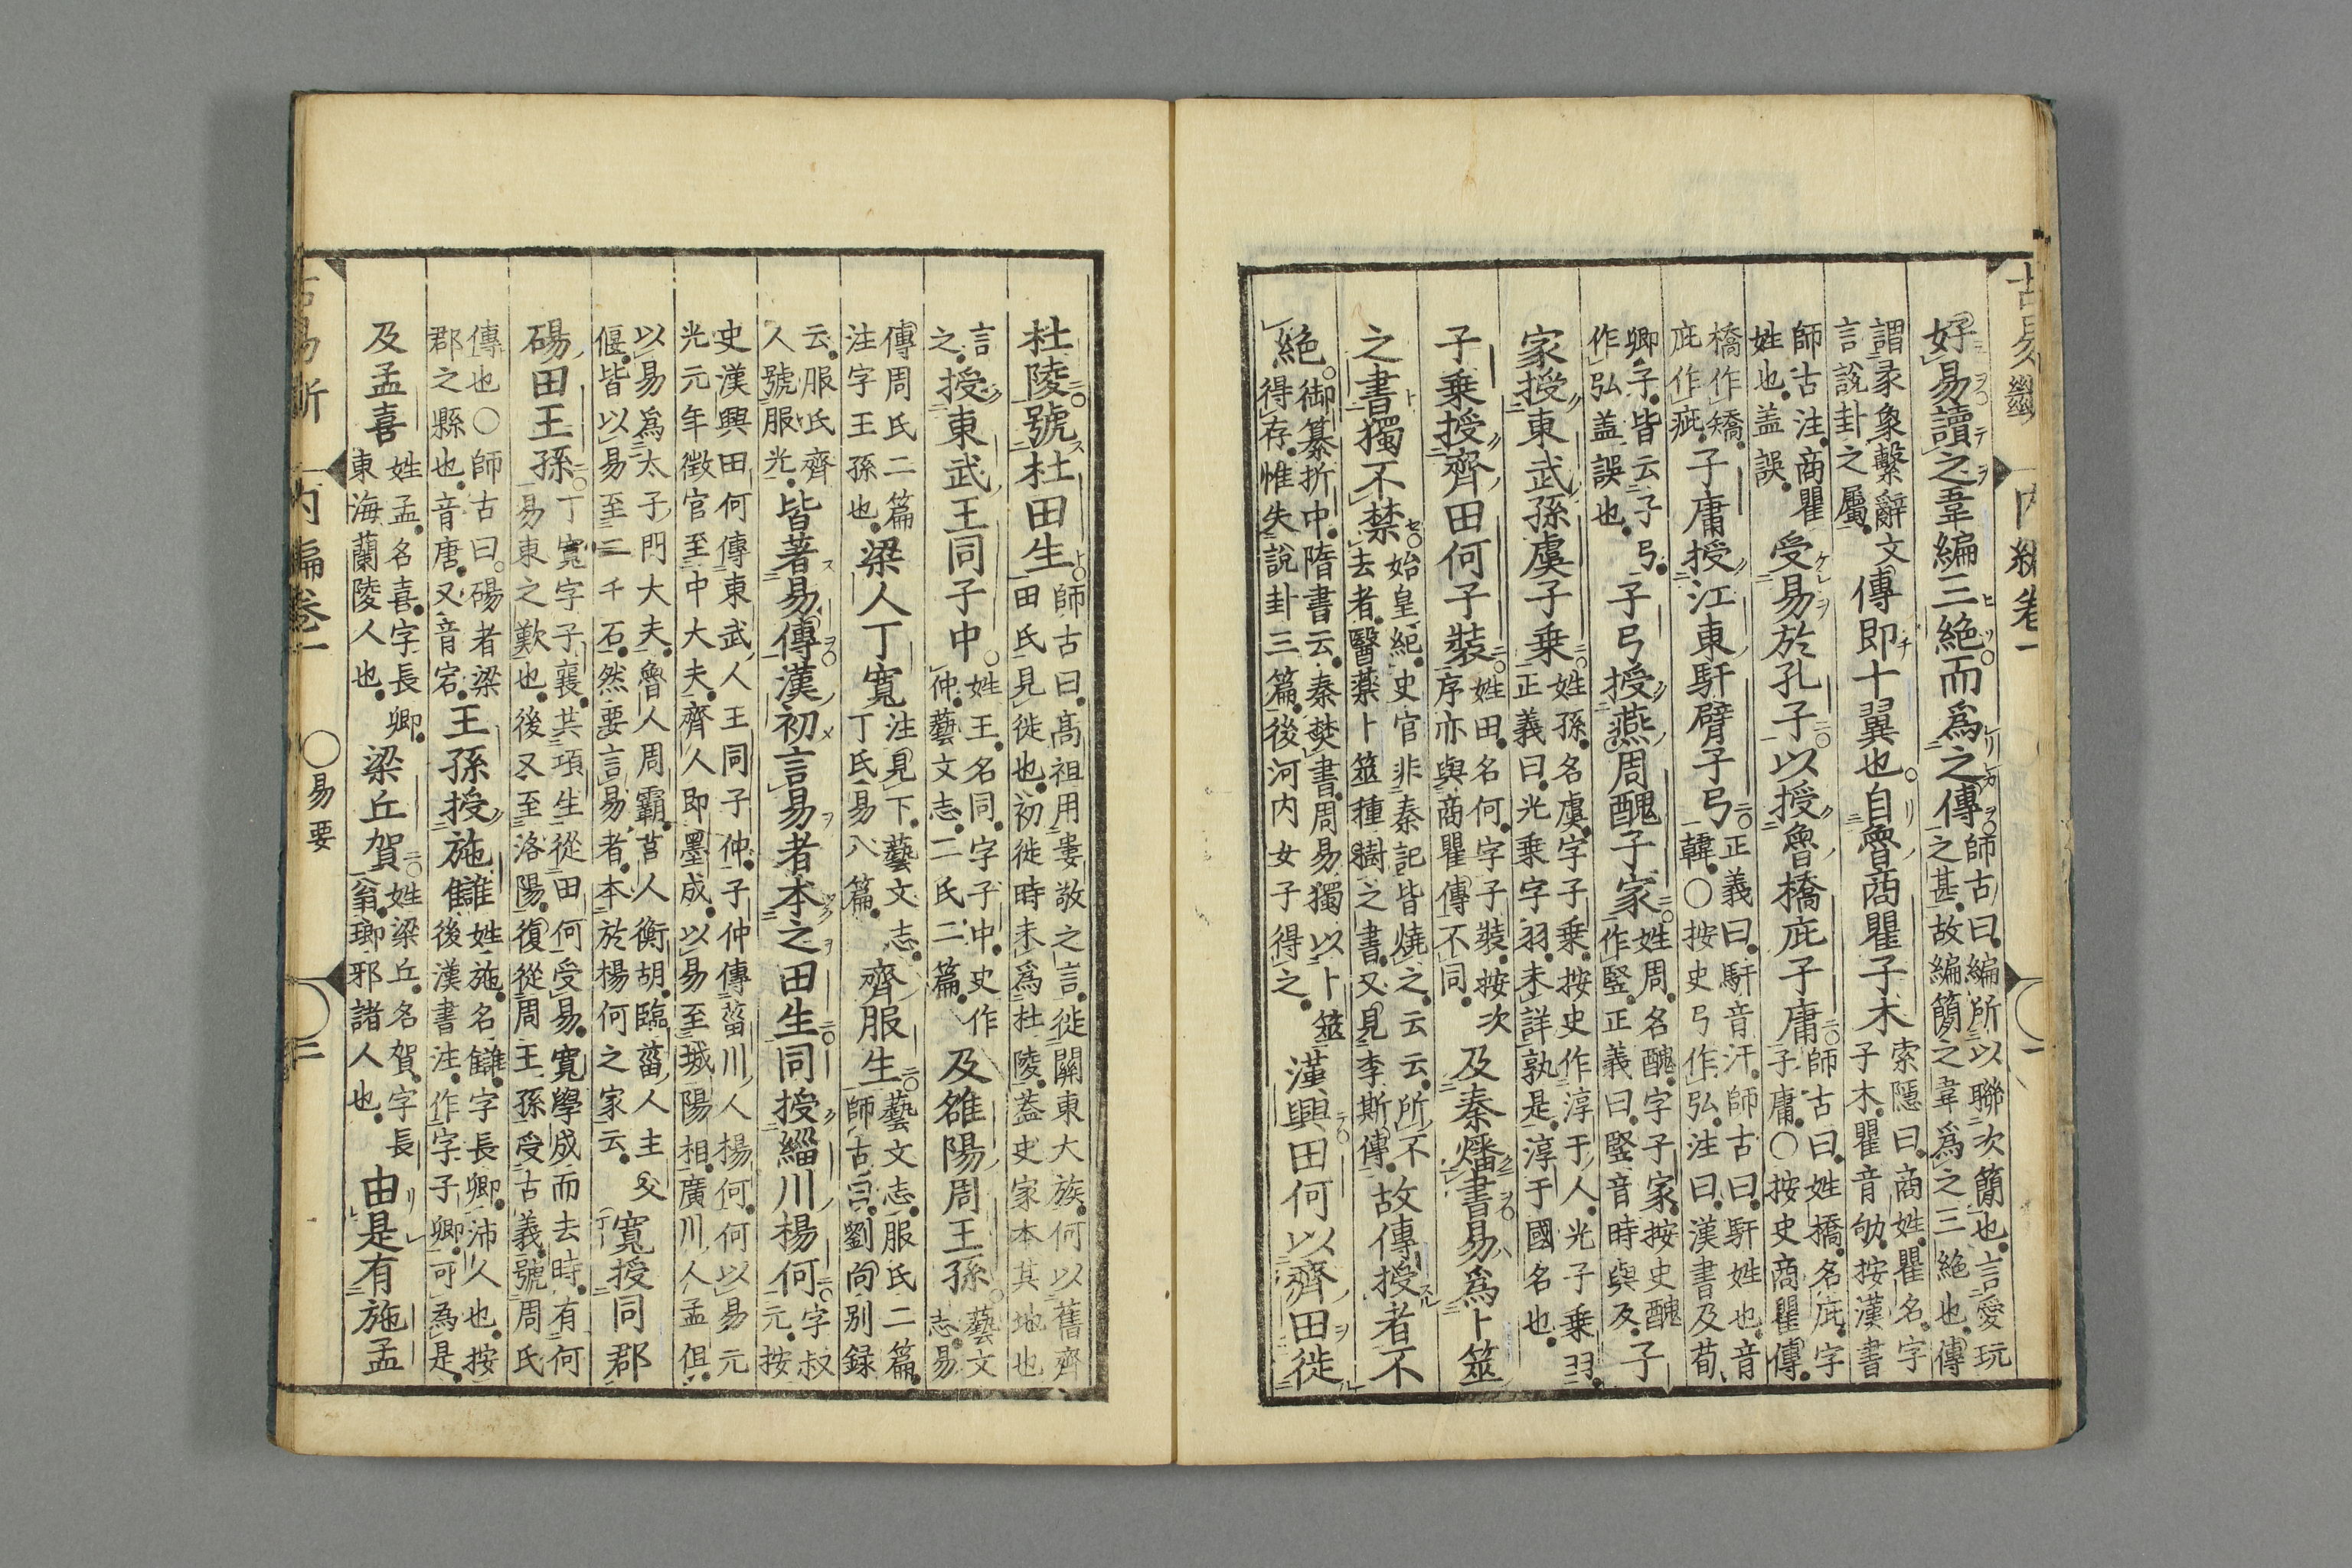 古易斷 内編卷一 一
好易讀之韋編三絶而爲之傳師古曰編所以聯次簡也言愛玩
之甚故編簡之韋爲之三絶也傳
謂彖象繫辭文
言説卦之屬傳即十翼也自魯商瞿子木索隱曰商姓瞿名字
子木瞿音劬按漢書
師古注商瞿
姓也盖誤受易於孔子以授魯橋庇子庸師古曰姓橋名庇字
子庸○按史商瞿傳
橋作矯
庇作疵子庸授江東馯臂子弓正義曰馯音汗師古曰馯姓也音
韓○按史弓作弘注曰漢書及荀
卿子皆云子弓
作弘盖誤也子弓授燕周醜子家姓周名醜字子家按史醜
作竪正義曰竪音時與及子
家授東武孫虞子乗姓孫名虞字子乗按史作淳于人光子乗羽
正義曰光乗字羽未詳孰是淳于國名也
子乗授齊田何子裝姓田名何字子裝按次
序亦與商瞿傳不同及秦燔書易爲卜筮
之書獨不禁始皇紀史官非秦記皆燒之云云所不
去者醫薬卜筮種樹之書又見李斯傳故傳授者不
絶御纂折中隋書云秦焚書周易獨以卜筮
得存惟失説卦三篇後河内女子得之漢興田何以齊田徙
杜陵號杜田生師古曰高祖用婁敬之言徙關東大族何以舊齊
田氏見徙也初徙時未爲杜陵蓋史家本其地也
言
之授東武王同子中姓王名同字子中史作
仲藝文志二氏二篇及雒陽周王孫藝文
志易
傳周氏二篇
注字王孫也梁人丁寬注見下藝文志
丁氏易八篇齊服生藝文志服氏二篇
師古曰劉向別録
云服氏齊
人號服光皆著易傳漢初言易者本之田生同授緇川楊何字叔
元按
史漢興田何傳東武人王同子仲子仲傳菑川人楊何何以易元
光元年徴官至中大夫齊人即墨成以易至城陽相廣川人孟但
以易爲太子門大夫魯人周霸莒人衡胡臨菑人主父
偃皆以易至二千石然要言易者本於楊何之家云寬授同郡
碭田王孫丁寬字子襄其項生從田何受易寬學成而去時有何
易東之歎也後又至洛陽復從周王孫受古義號周氏
傳也○師古曰碭者梁
郡之縣也音唐又音宕王孫授施讎姓施名讎字長卿沛人也按
後漢書注作字子卿可為是
及孟喜姓孟名喜字長卿
東海蘭陵人也梁丘賀姓梁丘名賀字長
翁瑯邪諸人也由是有施孟
古易斷 内編卷一 ○易要 二